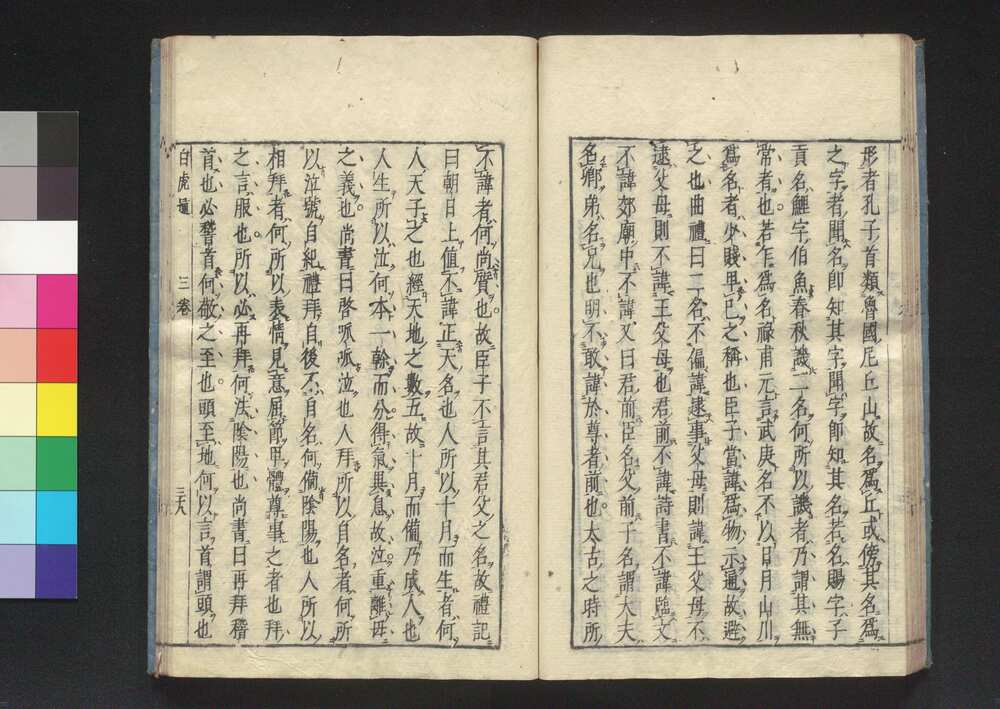 形者孔子首類魯國尼丘山故名爲丘或傍其名爲
之字者聞名即知其字聞字即知其名若名賜字子
貢名鯉字伯魚春秋譏二名何所以譏者乃謂其無
常者也若乍爲名祿甫元言武庚名不以日月山川
爲名者少賤卑己之稱也臣子當諱爲物示通故避
之也曲禮曰二名不偏諱逮事父母則諱王父母不
逮父母則不諱王父母也君前不諱詩書不諱臨文
不諱郊廟中不諱又曰君前臣名父前子名謂大夫
名卿弟名兄也明不敢諱於尊者前也太古之時所
不諱者何尚質也故臣子不言其君父之名故禮記
曰朝日上值不諱正天名也人所以十月而生者何
人天子之也經天地之數五故十月而備乃成人也
人生所以泣何本一幹而分得氣異息故泣重離母
之義也尚書曰啓呱呱泣也人拜所以自名者何所
以泣號自紀禮拜自後不自名何備陰陽也人所以
相拜者何所以表情見意屈節卑體尊事之者也拜
之言服也所以必再拜何法陰陽也尚書曰再拜稽
首也必稽首何敬之至也頭至地何以言首謂頭也
白虎通 三卷 三六